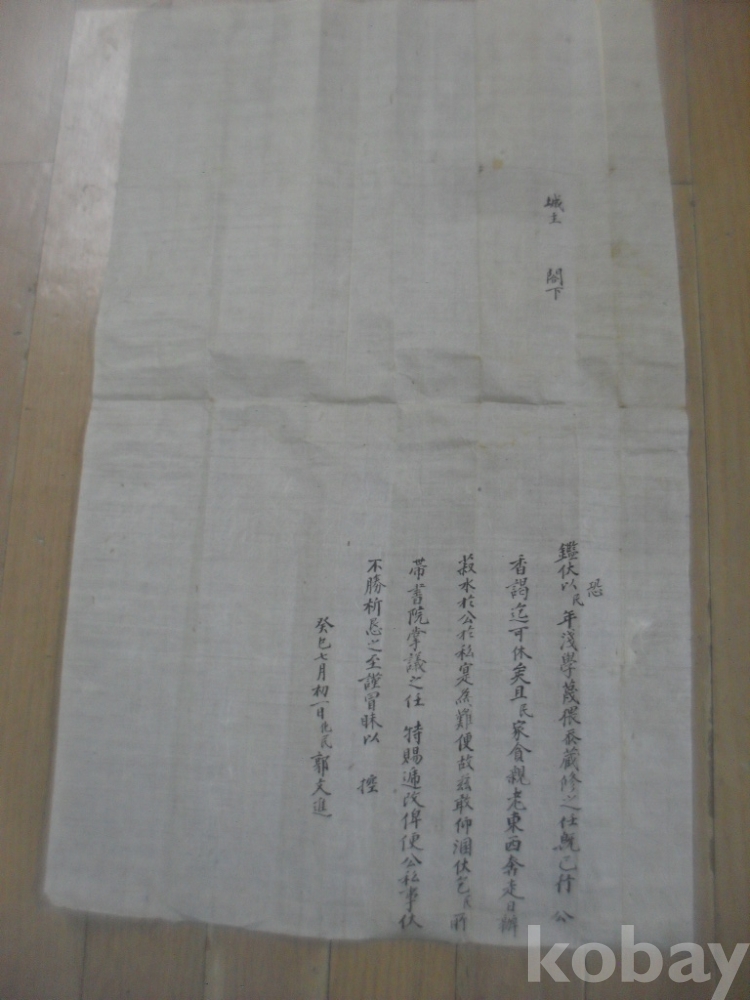 恐
鑑伏以民年淺學蔑猥忝藏修之任旣已行 公
香謁迄可休矣且民家貧親老東西奔走日辦
菽水於公於私寔爲難便故玆敢仰溷伏乞民所
帶書院掌議之任 特賜遞改俾便公私事伏
不勝祈恳之至謹冒昧以 控
癸巳七月初一日化民 郭文進
城主 閤下
kobay